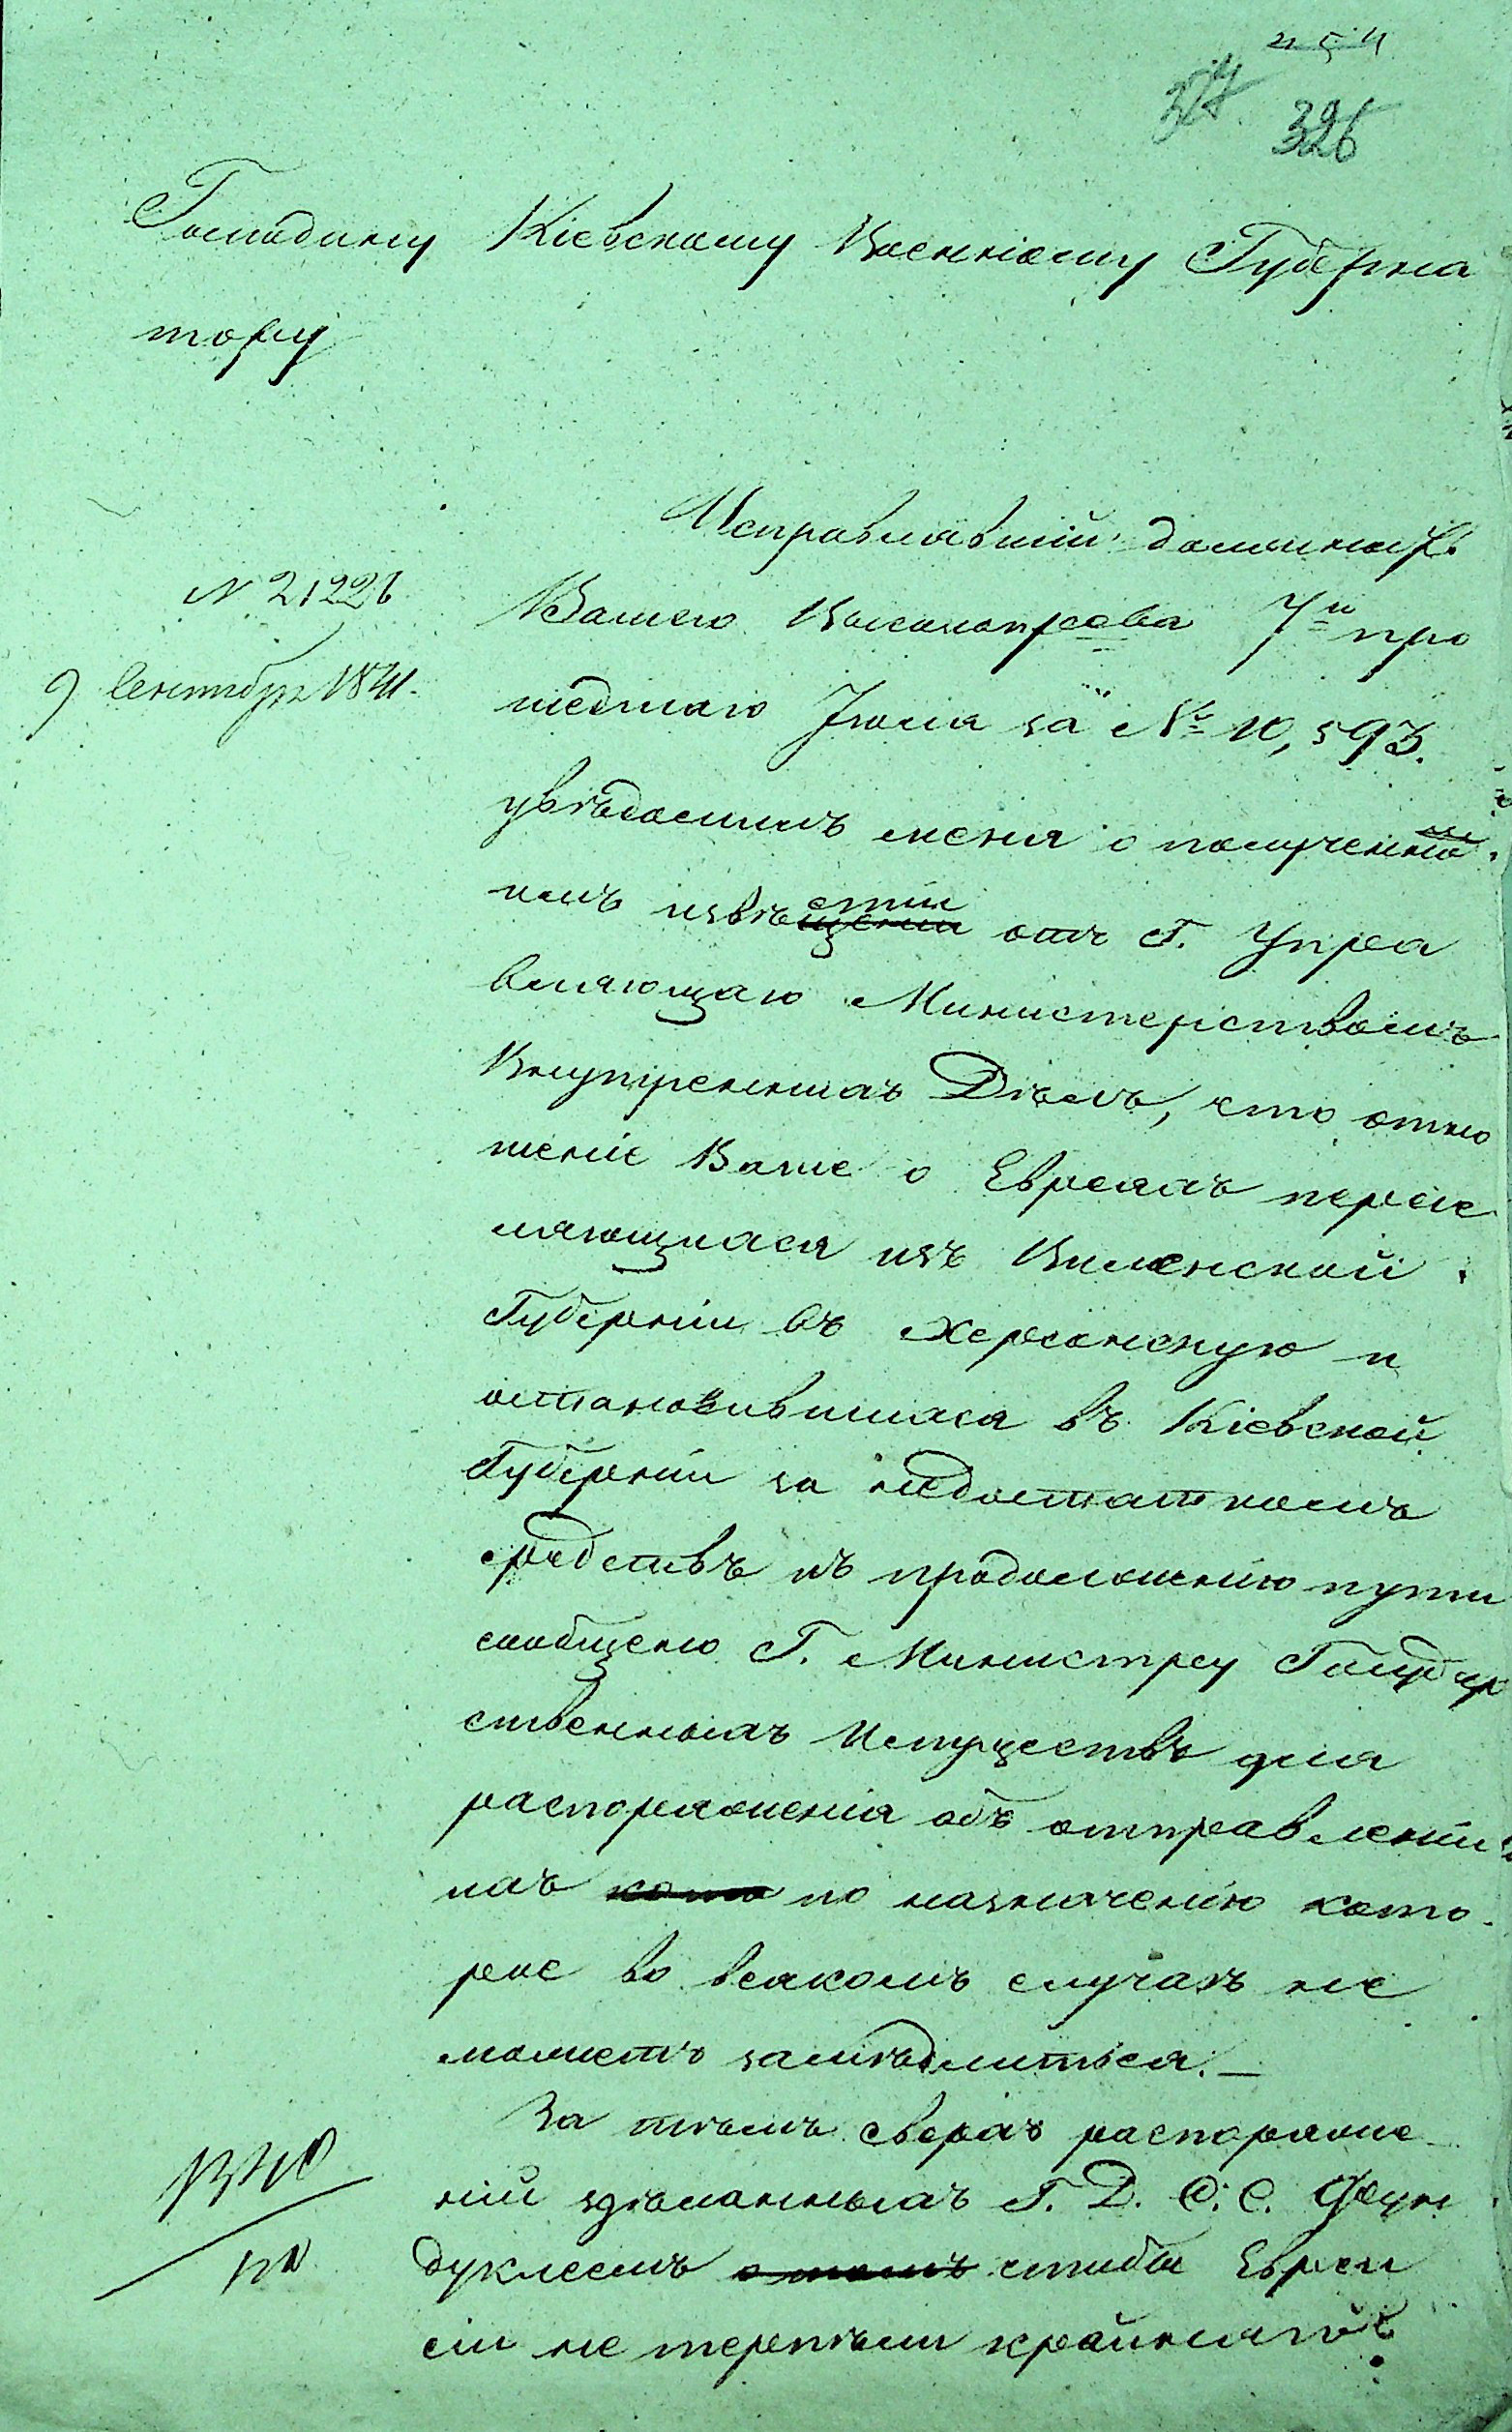 326
Господину Кіевскому Военному Губерна
тору
Исправлявшій должность
№ 21226
Вашего Высокопрева 7го про
9 Сентября 1841.
шедшаго Іюля за № 10,593.
увѣдомилъ меня о полученно
имъ извѣщеніи
стіи
отъ Г. Упра
вляющаго Министерствомъ
Внутреннихъ Дѣлъ, что отно
шеніе Ваше о Евреяхъ пересе
ляющихся изъ Виленской
Губерніи въ Херсонскую и
остановившихся въ Кіевской
Губерніи за недостаткомъ
средствъ къ продолженію пути
сообщено Г. Министру Государ
ственныхъ Имуществъ для
распоряженія объ отправленіи
ихъ кото по назначенію кото
рое во всякомъ случаѣ не
можетъ замѣдлиться.—
За тѣмъ сверхъ распоряже
ній здѣланныхъ Г. Д. С. С. Фун
дуклеемъ о томъ чтобы Евреи
сіи не терпѣли крайнягой